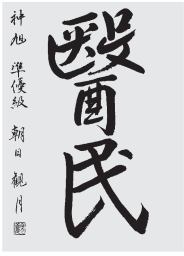 醫民
神旭 準優級 朝日 観月